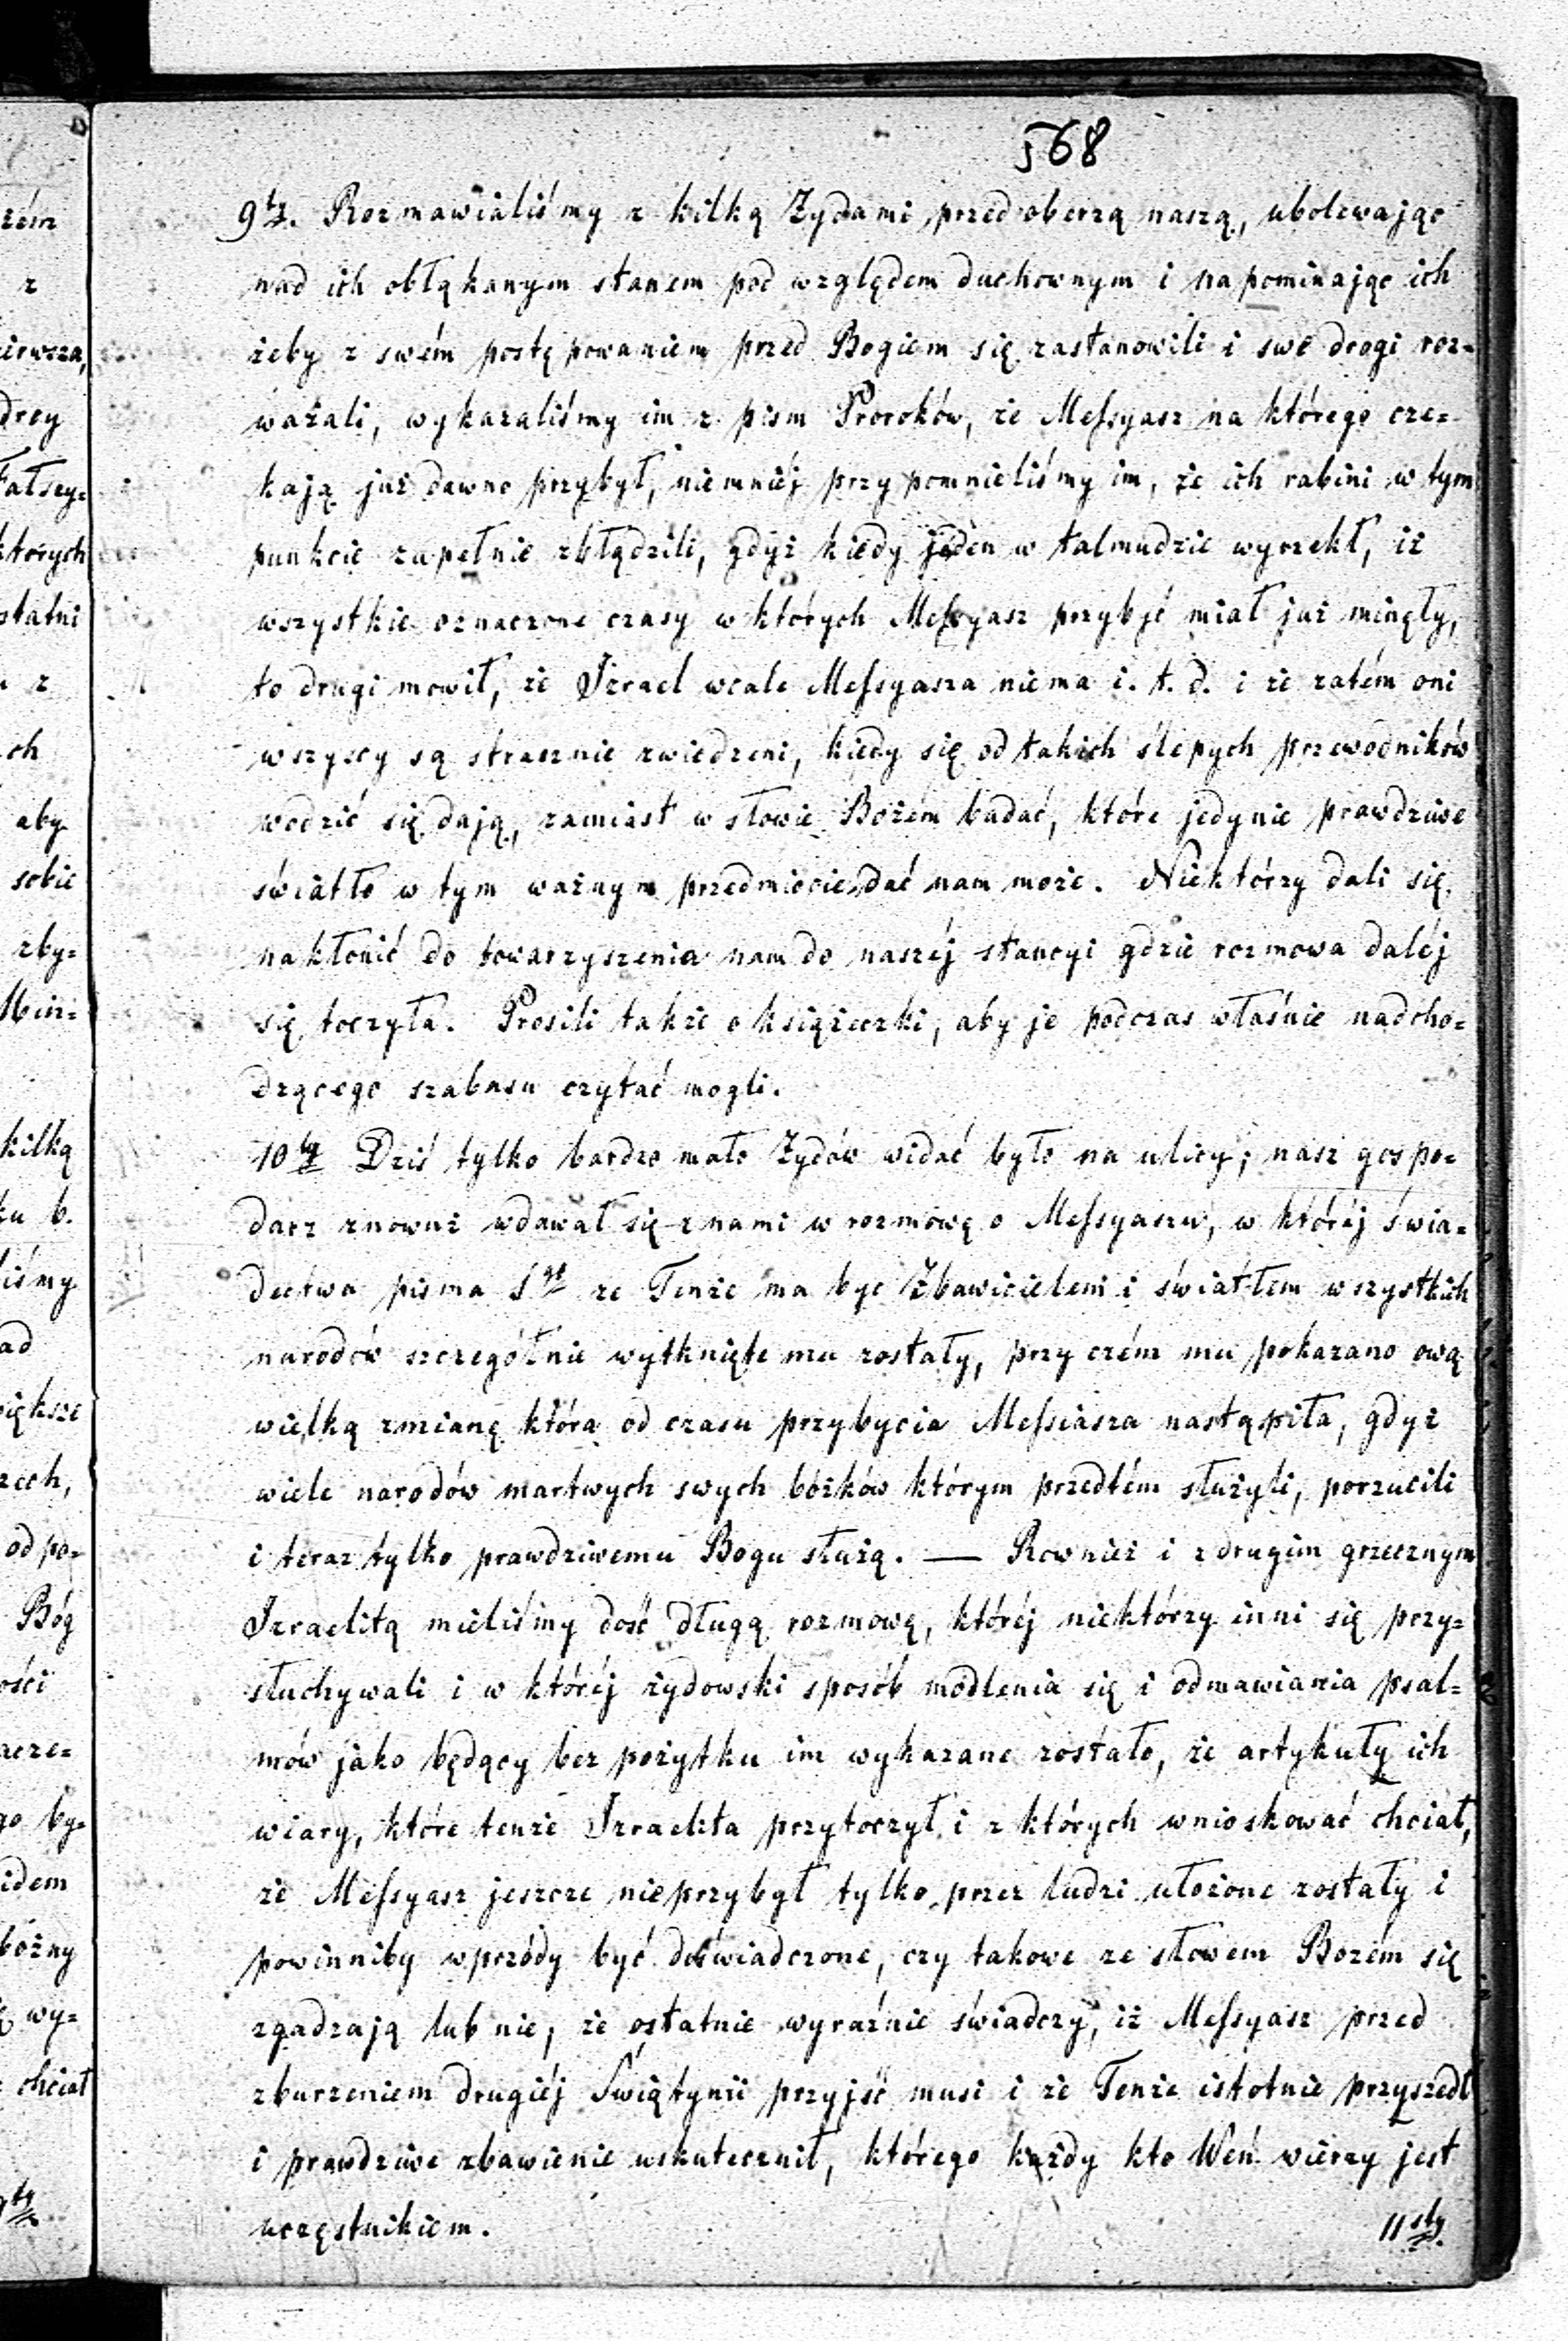 568
9ty. Rozmawialiśmy z kilką Żydami przed oberzą naszą, ubolewając
nad ich obłąkanym stanem pod względem duchownym i napominając ich
żeby z swém postępowaniem przed Bogiem się zastanowili i swe drogi roz=
ważali, wykazaliśmy im z pism Proroków, że Messyasz na którego cze=
kają już dawno przybył, niemniéj przypomnieliśmy im, że ich rabini w tym
punkcie zupełnie zbłądzili, gdyż kiedy jeden w talmudzie wyrzekł, iż
wszystkie oznaczone czasy w których Messyasz przybyć miał już minęły,
to drugi mowił, że Izrael wcale Messyasza niema i. t. d. i że zatém oni
wszyscy są strasznie zwiedzeni, kiedy się od takich ślepych przewodników
wodzić się dają, zamiast w słowie Bożém badać, które jedynie prawdziwe
światło w tym ważnym przedmiocie dać nam może. Niektórzy dali się
nakłonić do towarzyszenia nam do naszéj stancyi gdzie rozmowa daléj
się toczyła. Prosili także o książeczki, aby je podczas właśnie nadcho=
dzącego szabasu czytać mogli.
10ty Dziś tylko bardzo mało Żydów widać było na ulicy; nasz gospo=
darz znowuż wdawał się z nami w rozmowę o Messyaszu, w któréj świa=
dectwa pisma Sgo ze Tenże ma byc Zbawicielem i światłem wszystkich
narodów szczególnie wytknięte mu zostały, przy czém mu pokazano ową
wielką zmianę która od czasu przybycia Messiasza nastąpiła, gdyż
wiele narodów martwych swych bóżków którym przedtém służyli, porzucili
i teraz tylko prawdziwemu Bogu służą. — Rownież i z drugim grzecznym
Izraelitą mieliśmy dość długą rozmowę, któréj niektórzy inni się przy=
słuchywali i w któréj żydowski sposób modlenia się i odmawiania psal=
mów jako będący bez pożytku im wykazane zostało, że artykuły ich
wiary, które tenże Izraelita przytoczył i z których wnioskować chciał,
że Messyasz jeszcze nieprzybył tylko przez ludzi ułożone zostały i
powinniby wpzódy być doświadczone, czy takowe ze słowem Bozém się
zgadzają lub nie, że ostatnie wyraźnie świadczy, iż Messyasz przed
zburzeniem drugiéj Świątynii przyjść musi i że Tenże istotnie przyszedł
i prawdziwe zbawienie uskutecznił, którego każdy kto Weń wierzy jest
uczęstnikiem.
11sty.